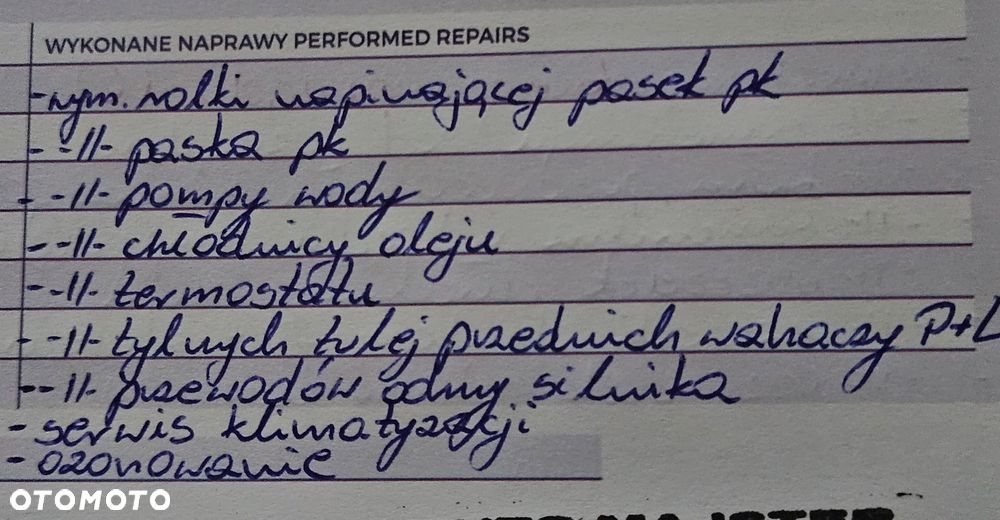 WYKONANE NAPRAWY PERFORMED REPAIRS
-wym. rolki napinającej pasek pk
- -||- paska pk
- -||- pompy wody
- -||- chłodnicy oleju
- -||- termostatu
- -||- tylnych tulej przednich wahaczy P+L
- -||- przewodów odmy silnika
- serwis klimatyzacji
- ozonowanie
OTOMOTO